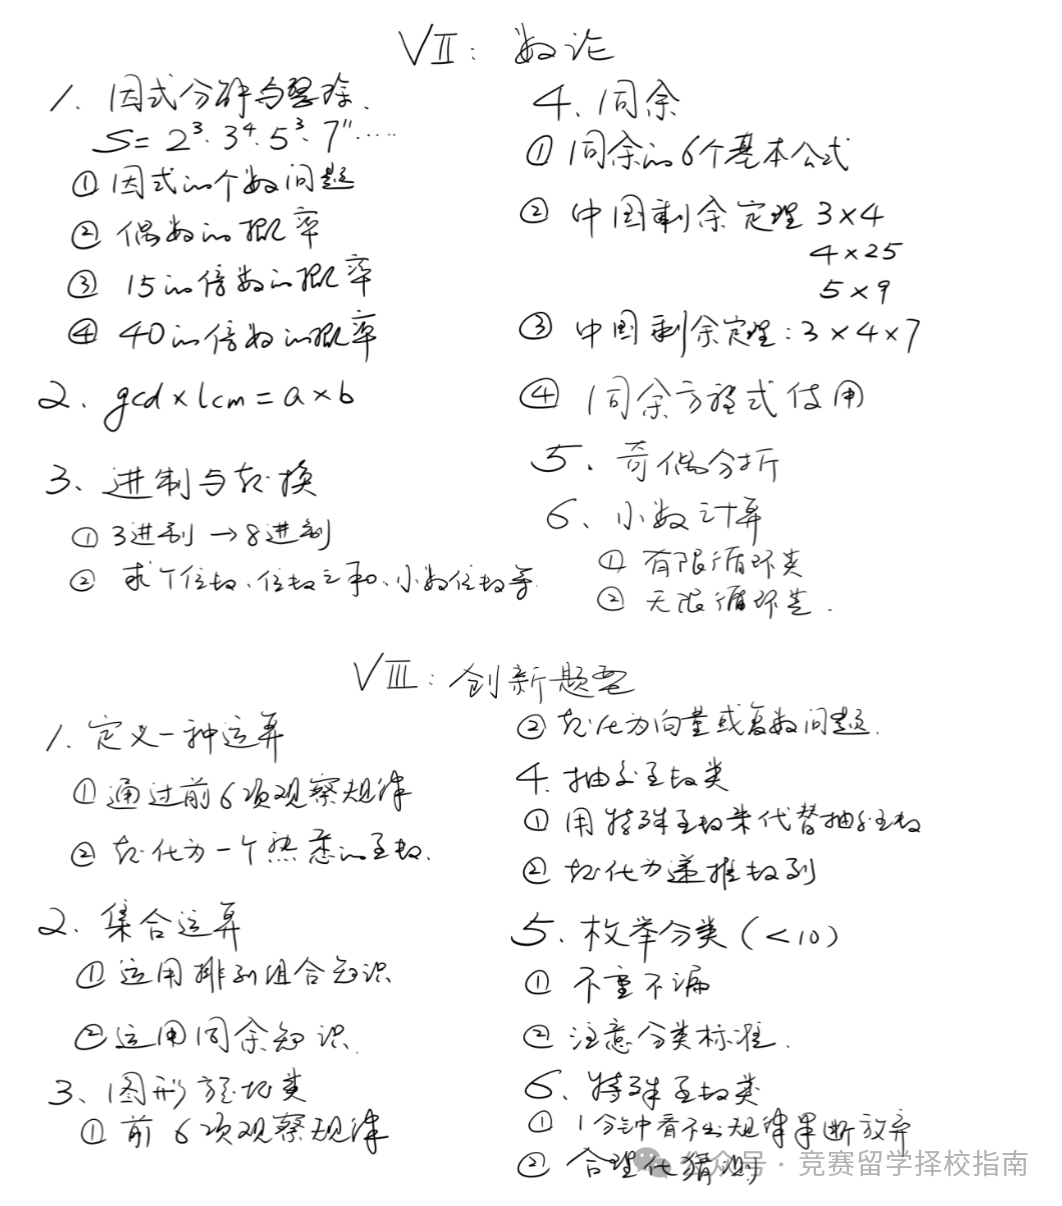 VII: 数论
1. 因式分解与整除.
S = 2³·3⁴·5³·7¹¹……
① 因式的个数问题
② 偶数的概率
③ 15的倍数的概率
④ 40的倍数的概率
2. gcd × lcm = a × b
3. 进制与转换
① 3进制 → 8进制
② 求个位数、位数之和、小数位数等.
4. 同余
① 同余的6个基本公式
② 中国剩余定理 3×4
4×25
5×9
③ 中国剩余定理: 3×4×7
④ 同余方程式使用
5. 奇偶分析
6. 小数计算
① 有限循环类
② 无限循环类.
VIII: 创新题型
1. 定义一种运算
① 通过前6项观察规律
② 转化为一个熟悉的函数.
2. 集合运算
① 运用排列组合知识
② 运用同余知识.
3. 图形旋切类
① 前6项观察规律
② 转化为向量或复数问题.
4. 抽象函数类
① 用特殊函数来代替抽象函数
② 转化为递推数列
5. 枚举分类 (<10)
① 不重不漏
② 注意分类标准.
6. 特殊函数类
① 1分钟看不出规律果断放弃
② 合理化猜测
公众号 · 竞赛留学择校指南